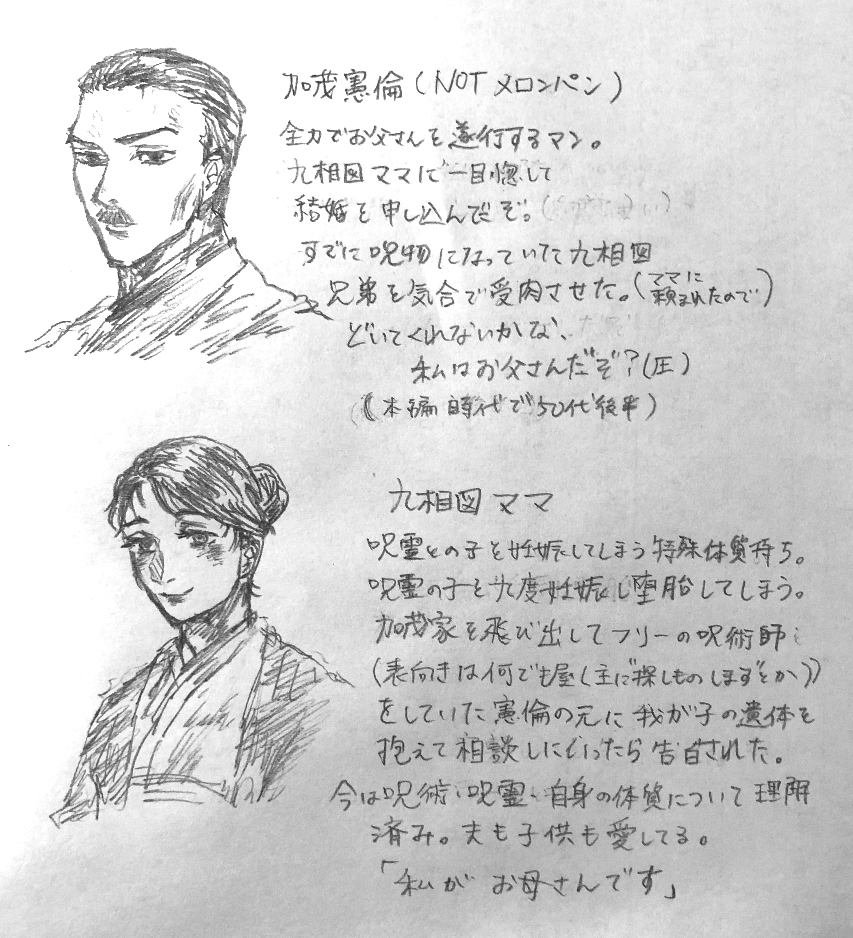 加茂憲倫(NOTメロンパン)
全力でお父さんを遂行するマン。
九相図ママに一目惚して
結婚を申し込んだぞ。
すでに呪物になっていた九相図
兄弟を気合で受肉させた。(ママに頼まれたので)
どいてくれないかな、
私はお父さんだぞ?(圧)
(本編時代で50代後半)
九相図ママ
呪霊との子を妊娠してしまう特殊体質持ち。
呪霊の子を九度妊娠し堕胎してしまう。
加茂家を飛び出してフリーの呪術師
(表向きは何でも屋(主に探しものしますとか))
をしていた憲倫の元に我が子の遺体を
抱えて相談しにいったら告白された。
今は呪術、呪霊、自身の体質について理解
済み。夫も子供も愛してる。
「私がお母さんです」